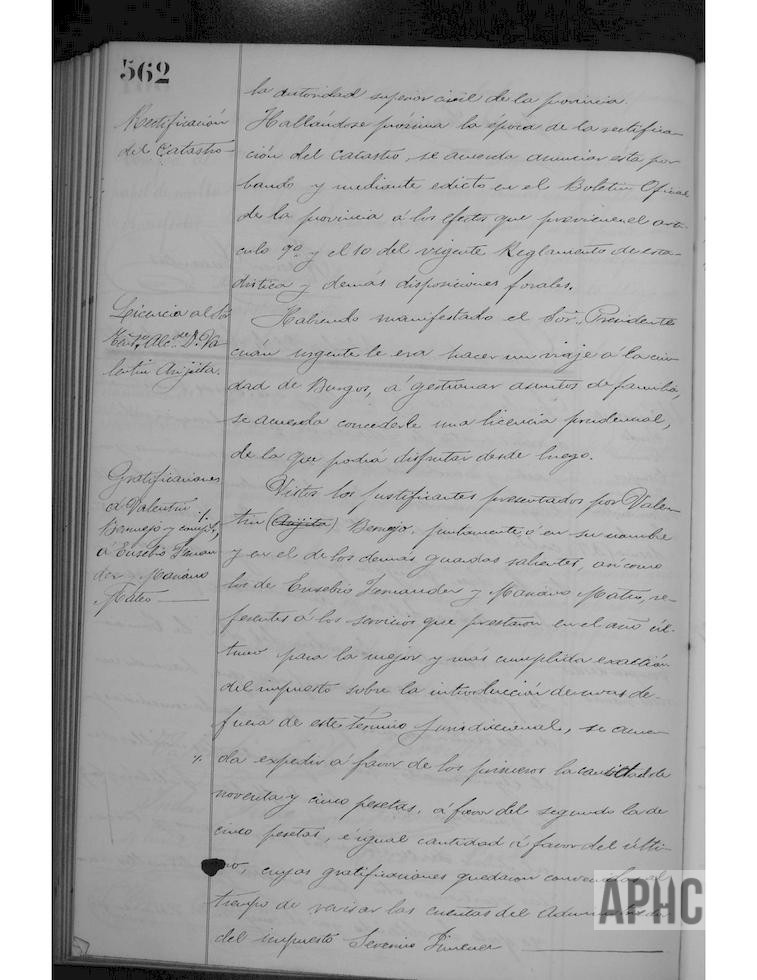 562
la autoridad superior civil de la provincia.
Rectificación
del Catastro
Hallándose próxima la época de la rectifica-
ción del catastro, se acuerda anunciar ésta por
bando y mediante edicto en el Boletin Oficial
de la provincia á los efectos que previenen el artí-
culo 9º y el 10 del vigente Reglamento de esta-
dística y demás disposiciones forales.
Licencia al Sr.
Tente. Alcde. D. Va-
lentin Arijita.
Habiendo manifestado el Sor. Presidente
cuán urgente le era hacer un viaje á la ciu-
dad de Burgos, á gestionar asuntos de familia,
se acuerda concederle una licencia prudencial,
de la que podrá disfrutar desde luego.
Gratificaciones
á Valentin
Bermejo y compñ.,
á Eusebio Fernan
dez y Mariano
Mateo
Vistos los justificantes presentados por Valen-
tin (Arijita) Bermejo, juntamente, ó en su nombre
y en el de los demás guardas salientes, asi como
los de Eusebio Fernandez y Mariano Mateo, re-
ferentes á los servicios que prestaron en el año úl-
timo para la mejor y más cumplida exacción
del impuesto sobre la introducción de uvas de
fuera de este término jurisdiccional, se acuer-
da expedir á favor de los primeros la cantidad de
noventa y cinco pesetas, á favor del segundo la de
cinco pesetas, é igual cantidad á favor del últi-
mo, cuyas gratificaciones quedaron convenidas al
tiempo de revisar las cuentas del Administrador
del impuesto Severino Jimenez
APHC